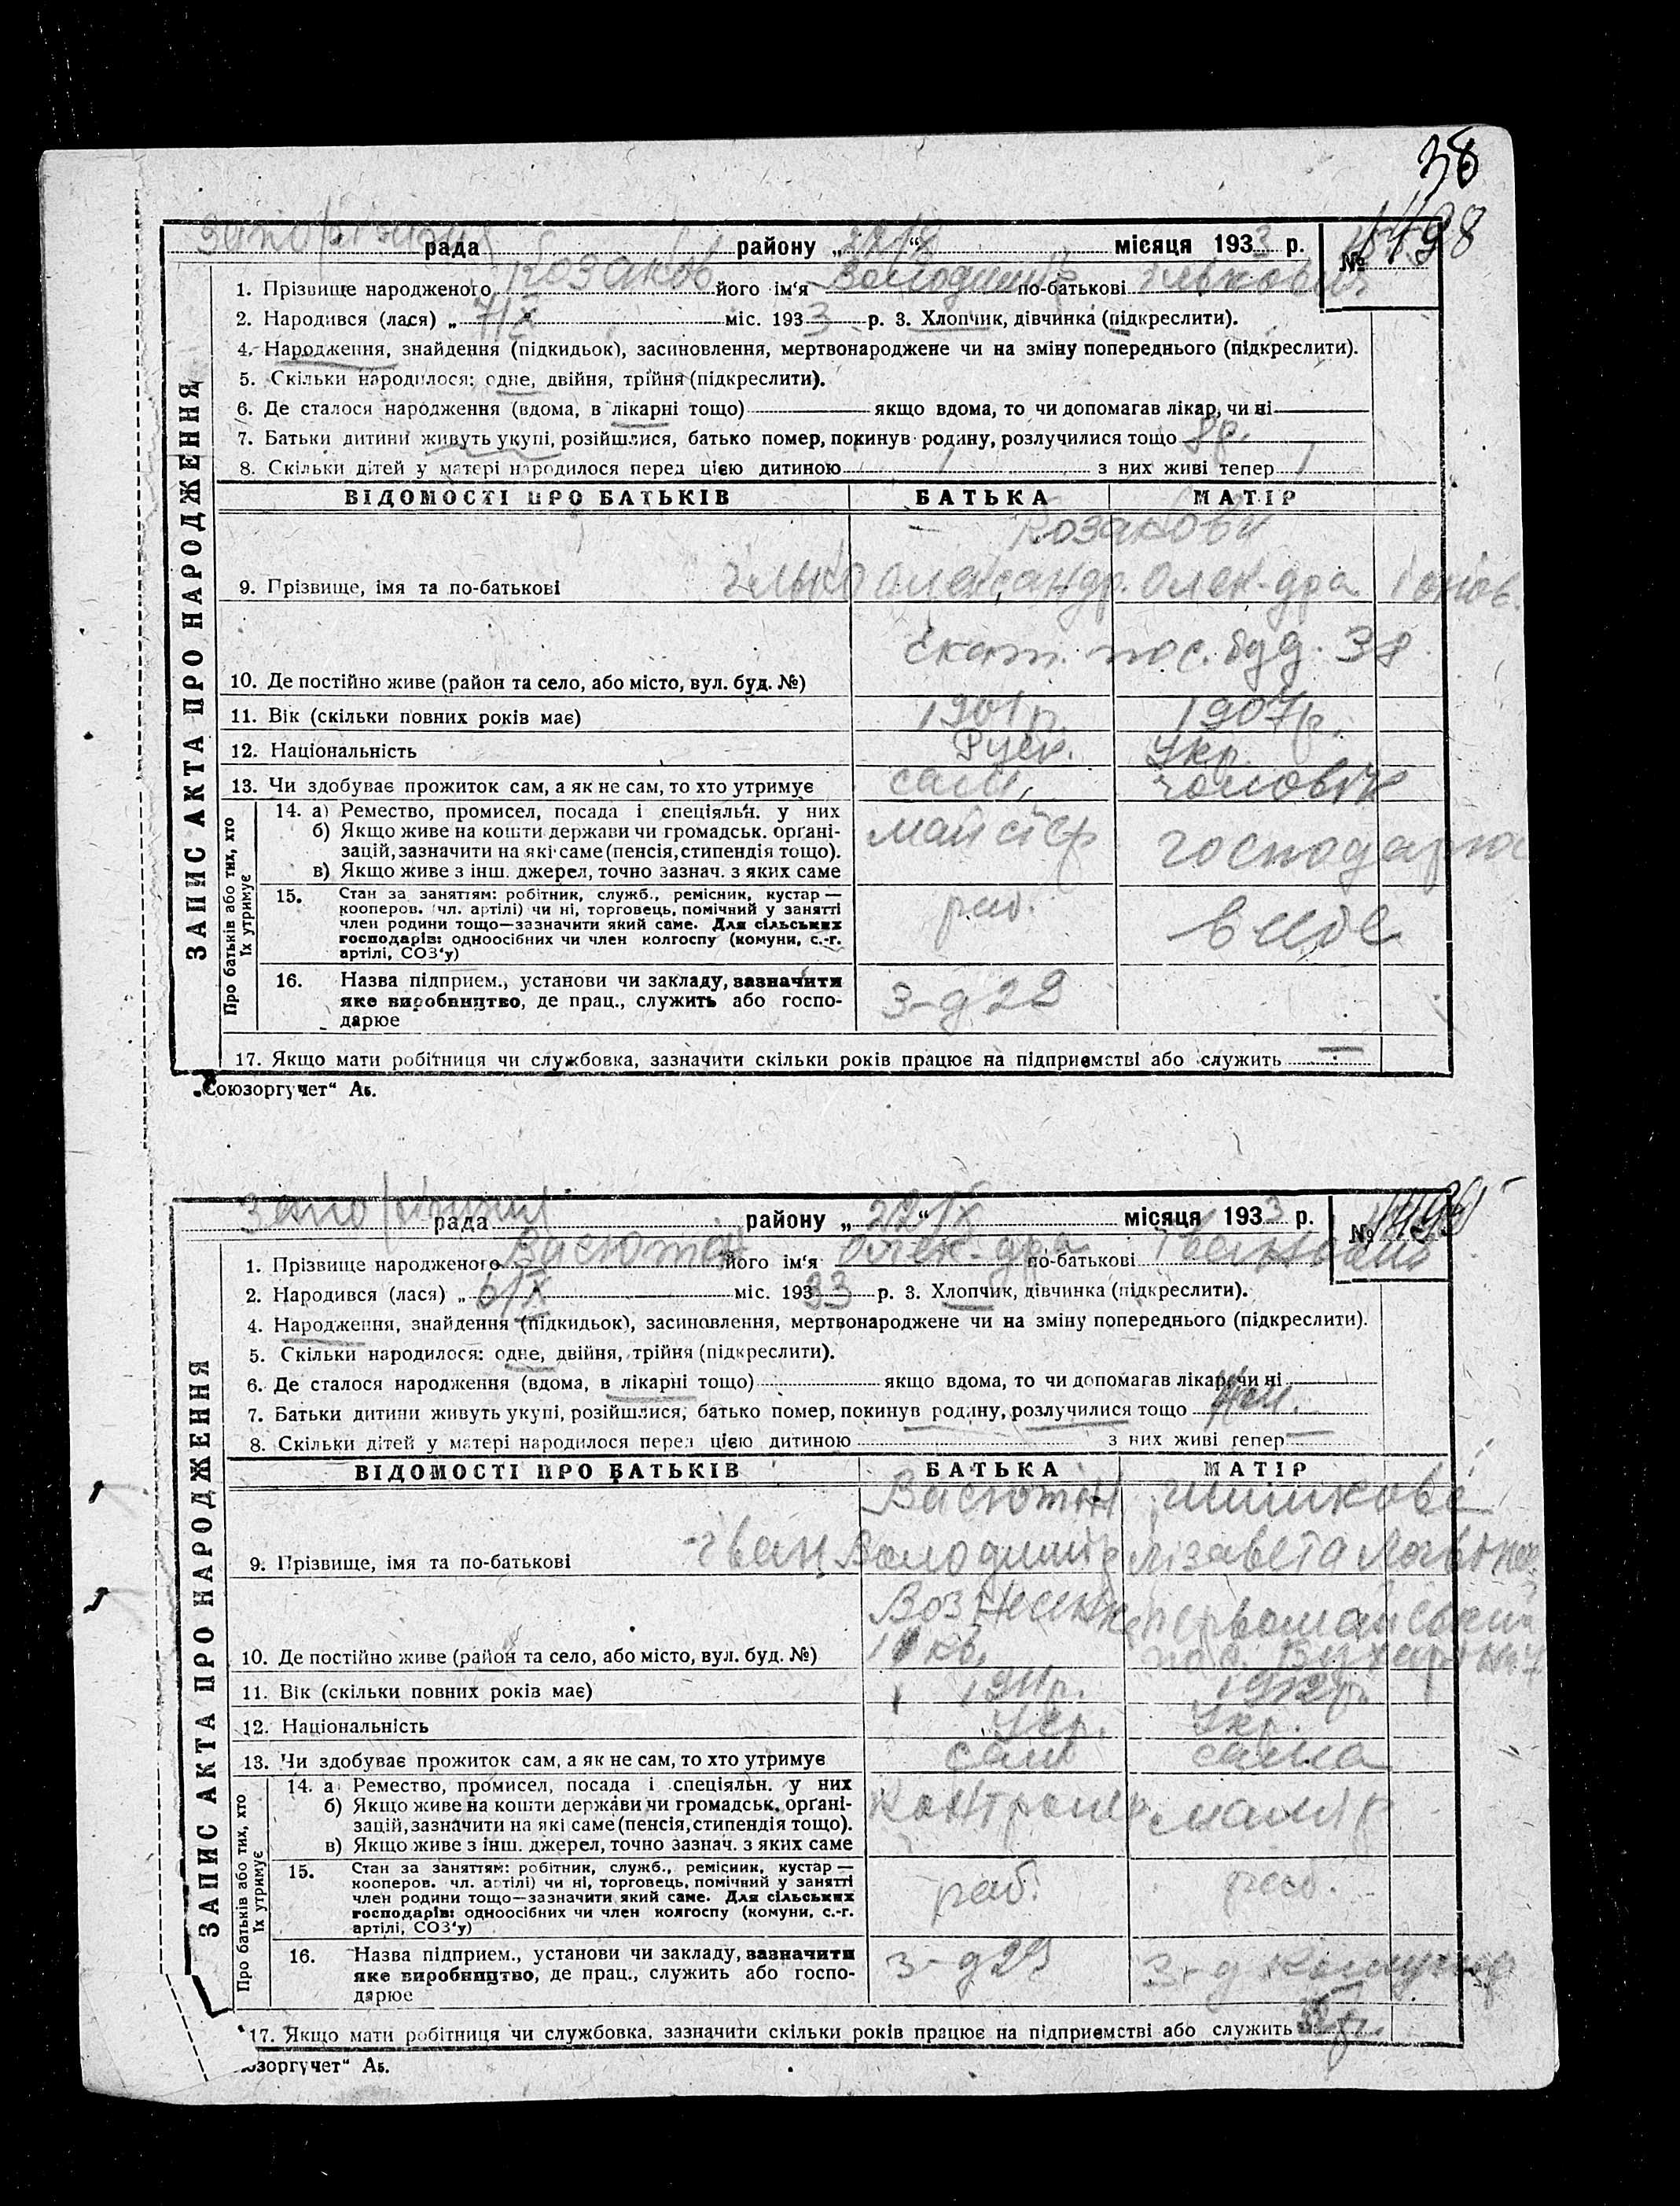 38
Запорізька рада району „22 IX“ місяця 1933 р. № 1498
1. Прізвище народженого Козаков його ім‘я Володимир по-батькові Ількович
2. Народився (лася) „ 7/IX “ міс. 1933 р. 3. Хлопчик, дівчинка (підкреслити).
4. Народження, знайдення (підкидьок), засиновлення, мертвонароджене чи на зміну попереднього (підкреслити).
5. Скільки народилося: одне, двійня, трійня (підкреслити).
6. Де сталося народження (вдома, в лікарні тощо) якщо вдома, то чи допомагав лікар, чи ні
7. Батьки дитини живуть укупі, розійшлися, батько помер, покинув родину, розлучилися тощо 8 р.
8. Скільки дітей у матері народилося перед цією дитиною 1 з них живі тепер 1
ВІДОМОСТІ ПРО БАТЬКІВ БАТЬКА МАТІР
Козакови
9. Прізвище, імя та по-батькові Ілько Александр. Олек-дра
Екат. пос. буд. 38
10. Де постійно живе (район та село, або місто, вул. буд. №)
11. Вік (скільки повних років має) 1901 р. 1907 р.
12. Національність Руск. Укр.
13. Чи здобуває прожиток сам, а як не сам, то хто утримує сам, чоловік
14. а) Ремество, промисел, посада і спеціяльн. у них
б) Якщо живе на кошти держави чи громадськ. орґані-
зацій, зазначити на які саме (пенсія, стипендія тощо).
в) Якщо живе з інш. джерел, точно зазнач. з яких саме
майстер господарює
15. Стан за заняттям: робітник, служб., ремісник, кустар —
кооперов. (чл. артілі) чи ні, торговець, помічний у занятті
член родини тощо—зазначити який саме. Для сільських
господарів: одноосібних чи член колгоспу (комуни, с.-г.
артілі, СОЗ‘у)
раб.
16. Назва підприєм., установи чи закладу, зазначити
яке виробництво, де прац., служить або госпо-
дарює
З-д 29
17. Якщо мати робітниця чи службовка, зазначити скільки років працює на підприємстві або служить —
ЗАПИС АКТА ПРО НАРОДЖЕННЯ
Про батьків або тих, хто
їх утримує
„Союзоргучет“ Аь.
Запорізька рада району „22 IX“ місяця 1933 р. №
1. Прізвище народженого Васютін його ім‘я Олек-дра по-батькові
2. Народився (лася) „ 6/IX “ міс. 1933 р. 3. Хлопчик, дівчинка (підкреслити).
4. Народження, знайдення (підкидьок), засиновлення, мертвонароджене чи на зміну попереднього (підкреслити).
5. Скільки народилося: одне, двійня, трійня (підкреслити).
6. Де сталося народження (вдома, в лікарні тощо) якщо вдома, то чи допомагав лікар, чи ні
7. Батьки дитини живуть укупі, розійшлися, батько помер, покинув родину, розлучилися тощо
8. Скільки дітей у матері народилося перед цією дитиною з них живі тепер —
ВІДОМОСТІ ПРО БАТЬКІВ БАТЬКА МАТІР
Васютін Шишкова
9. Прізвище, імя та по-батькові Іван Володимір Лізавета
Вознесенка
10. Де постійно живе (район та село, або місто, вул. буд. №)
11. Вік (скільки повних років має) 1911 р. 1912 р.
12. Національність Укр. Укр.
13. Чи здобуває прожиток сам, а як не сам, то хто утримує сам сама
14. а) Ремество, промисел, посада і спеціяльн. у них
б) Якщо живе на кошти держави чи громадськ. орґані-
зацій, зазначити на які саме (пенсія, стипендія тощо).
в) Якщо живе з інш. джерел, точно зазнач. з яких саме
контролер маляр
15. Стан за заняттям: робітник, служб., ремісник, кустар —
кооперов. чл. артілі) чи ні, торговець, помічний у занятті
член родини тощо—зазначити який саме. Для сільських
господарів: одноосібних чи член колгоспу (комуни, с.-г.
артілі, СОЗ‘у)
раб. раб.
16. Назва підприєм., установи чи закладу, зазначити
яке виробництво, де прац., служить або госпо-
дарює
З-д 29 З-д Комунар
17. Якщо мати робітниця чи службовка, зазначити скільки років працює на підприємстві або служить
ЗАПИС АКТА ПРО НАРОДЖЕННЯ
Про батьків або тих, хто
їх утримує
юзоргучет“ Аь.